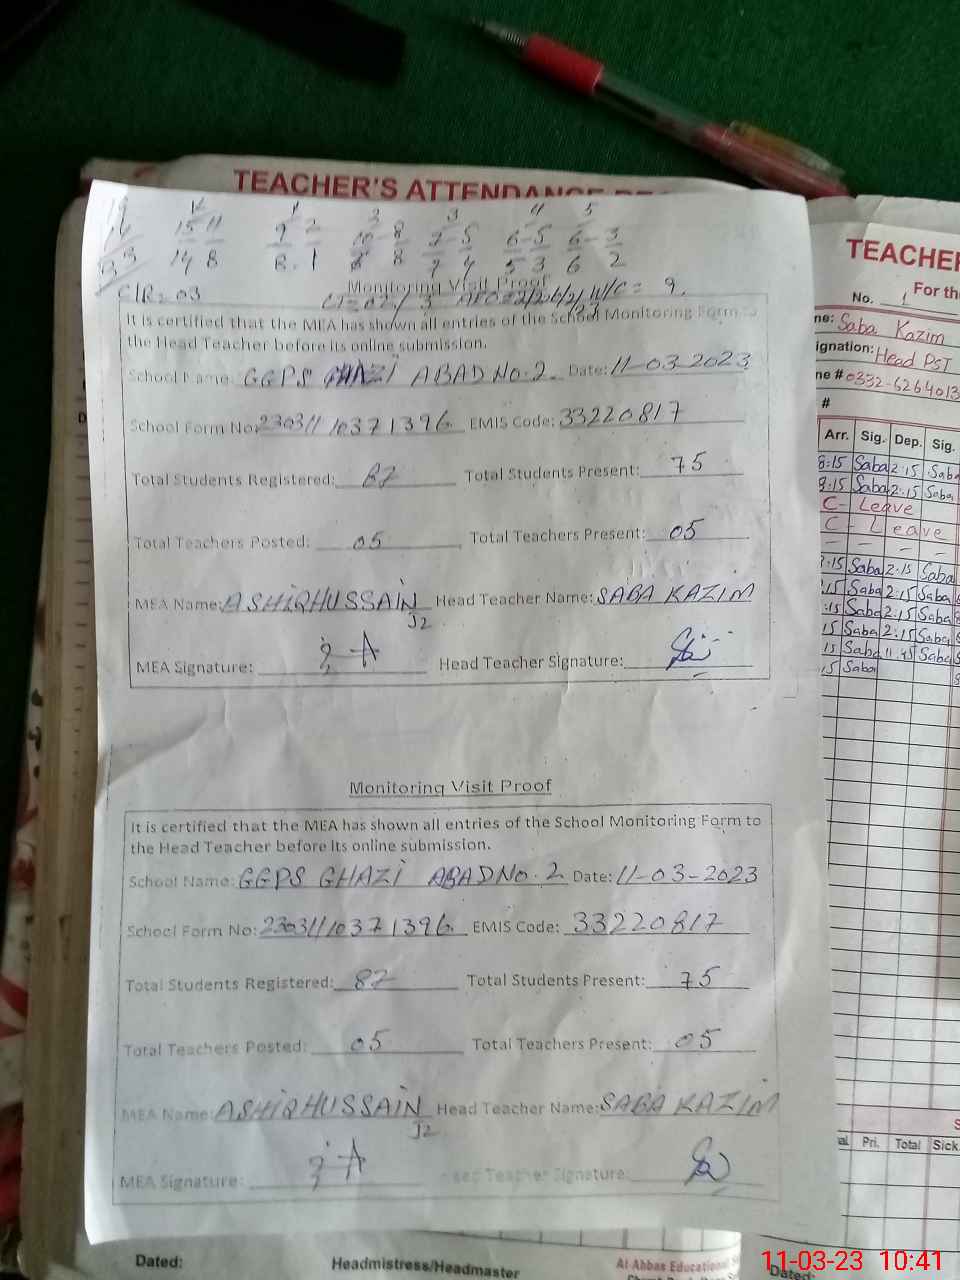 TEACHER'S ATTENDANCE
CIR=03
Monitoring Visit Proof
It is certified that the MEA has shown all entries of the School Monitoring Form to
the Head Teacher before its online submission.
School Name: GGPS GHAZI ABAD NO.2 Date: 11-03-2023
School Form No: 23031110371396 EMIS Code: 33220817
Total Students Registered: 87 Total Students Present: 75
Total Teachers Posted: 05 Total Teachers Present: 05
MEA Name: ASHIQ HUSSAIN Head Teacher Name: SABA KAZIM
J2
MEA Signature: Head Teacher Signature:
Monitoring Visit Proof
It is certified that the MEA has shown all entries of the School Monitoring Form to
the Head Teacher before its online submission.
School Name: GGPS GHAZI ABAD NO.2 Date: 11-03-2023
School Form No: 23031110371396 EMIS Code: 33220817
Total Students Registered: 87 Total Students Present: 75
Total Teachers Posted: 05 Total Teachers Present: 05
MEA Name: ASHIQ HUSSAIN Head Teacher Name: SABA KAZIM
J2
MEA Signature: Teacher Signature:
Dated: Headmistress/Headmaster
Al Abbas Educational
TEACHER
For the
No. 1
Saba Kazim
Head PST
0332-6264013
#
Arr. Sig. Dep. Sig.
8:15 Saba 2:15 Saba
8:15 Saba 2:15 Saba
C- Leave
C- Leave
- - - -
:15 Saba 2:15 Saba
:15 Saba 2:15 Saba
:15 Saba 2:15 Saba
15 Saba 2:15 Saba
15 Saba 11:45 Saba
15 Saba
Pri. Total Sick.
Dated:
11-03-23 10:41